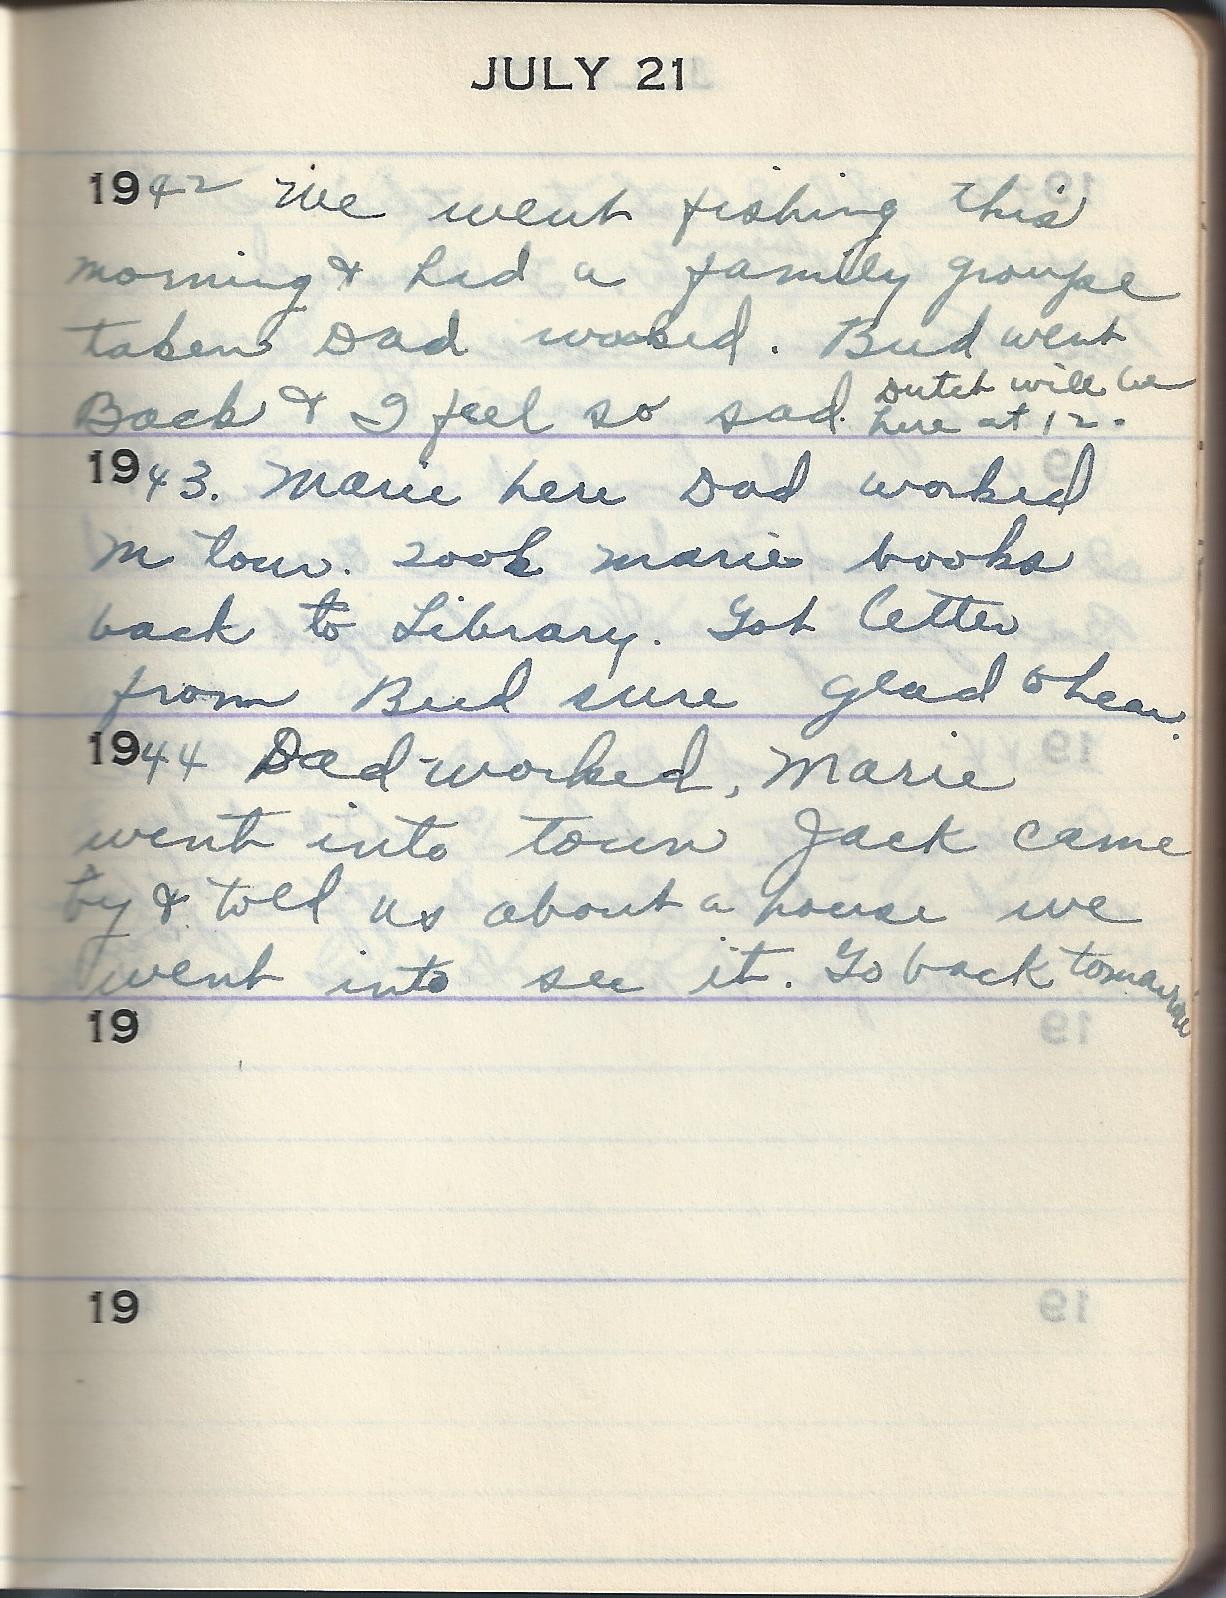 JULY 21
1942 We went fishing this
morning & had a family groupe
taken Dad worked. Bud went
Back & I feel so sad. Dutch will be
here at 12.
1943. Marie here Dad worked
in town. Took Marie books
back to Library. Got letter
from Bud sure glad to hear.
1944 Dad worked, Marie
went into town Jack came
by & told us about a house we
went into see it. Go back tomarrow
19
19